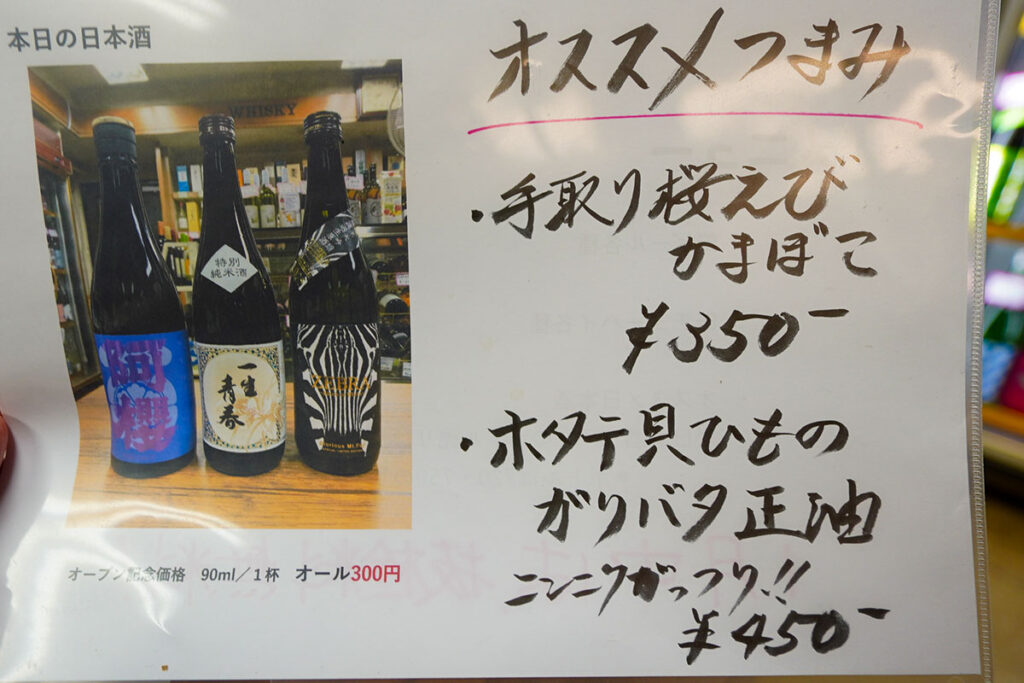 本日の日本酒
WHISKY
特別
純米酒
阿櫻
一生
青春
ZEBRA
オープン記念価格 90ml/1杯 オール300円
オススメつまみ
・手取り桜えび
かまぼこ
¥350-
・ホタテ貝ひもの
がりバタ正油
ニンニクがっつり!!
¥450-